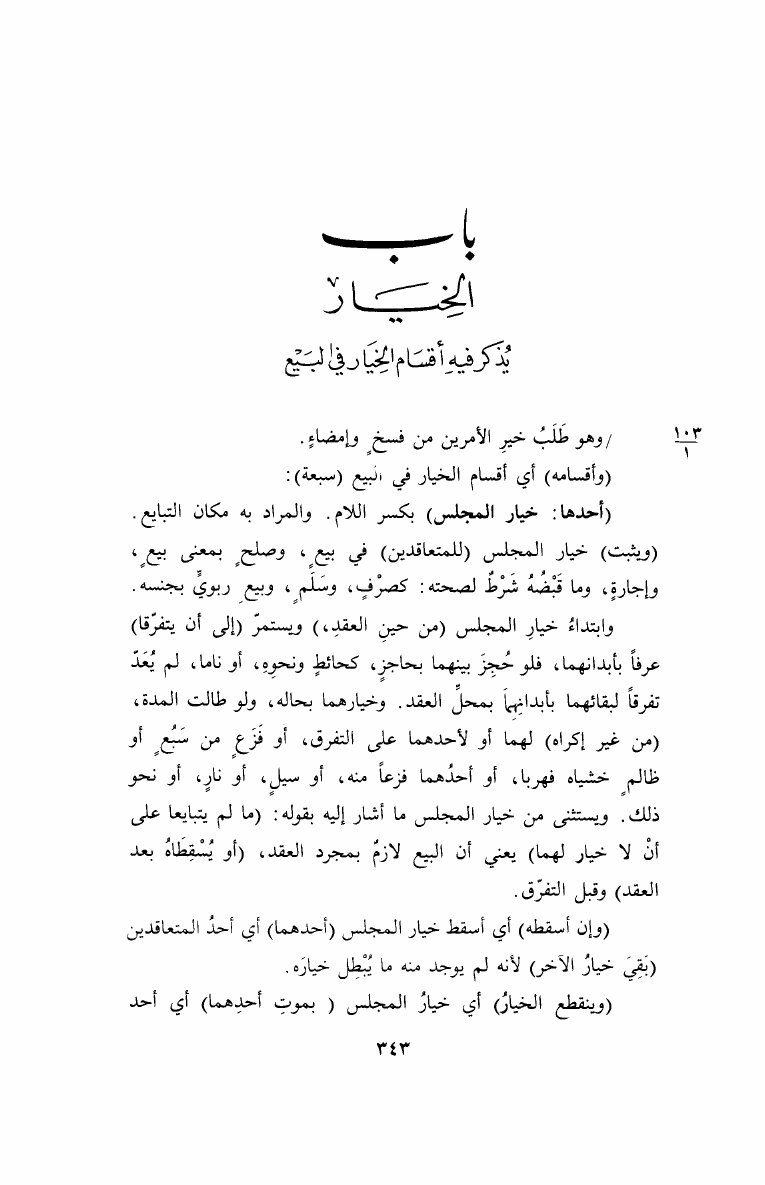 باب
الخيار
يُذكر فيه أقسام الخيار في البيع
١٠٣
١
/ وهو طَلَبُ خيرِ الأمرين من فسخٍ وإمضاءٍ.
(وأقسامه) أي أقسام الخيار في البيع (سبعة):
(أحدها: خيار المجلس) بكسر اللام. والمراد به مكان التبايع.
(ويثبت) خيار المجلس (للمتعاقدين) في بيعٍ، وصلحٍ بمعنى بيعٍ،
وإجارةٍ، وما قَبْضُهُ شَرْطٌ لصحته: كصرْفٍ، وسَلَمٍ، وبيعِ ربويٍّ بجنسه.
وابتداءُ خيارِ المجلس (من حينِ العقدِ،) ويستمرّ (إلى أن يتفرّقا)
عرفاً بأبدانهما، فلو حُجِزَ بينهما بحاجزٍ، كحائطٍ ونحوِهِ، أو ناما، لم يُعَدّ
تفرقاً لبقائهما بأبدانِهِمَا بمحلِّ العقد. وخيارهما بحاله، ولو طالت المدة،
(من غير إكراه) لهما أو لأحدهما على التفرق، أو فَزَعٍ من سَبُعٍ أو
ظالمٍ خشياه فهربا، أو أحدُهما فزعاً منه، أو سيلٍ، أو نارٍ، أو نحو
ذلك. ويستثنى من خيار المجلس ما أشار إليه بقوله: (ما لم يتبايعا على
أنْ لا خيار لهما) يعني أن البيع لازمٌ بمجرد العقد، (أو يُسْقِطَاهُ بعد
العقد) وقبل التفرّق.
(وإن أسقطه) أي أسقط خيار المجلس (أحدهما) أي أحدُ المتعاقدين
(بَقِيَ خيارُ الآخر) لأنه لم يوجد منه ما يُبْطِل خيارَه.
(وينقطع الخيارُ) أي خيارُ المجلس ( بموتِ أحدِهما) أي أحد
٣٤٣